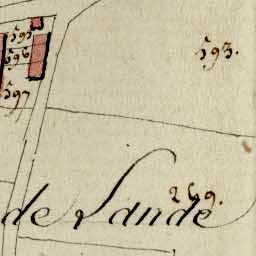 595
596
593.
597
269.
de Lande